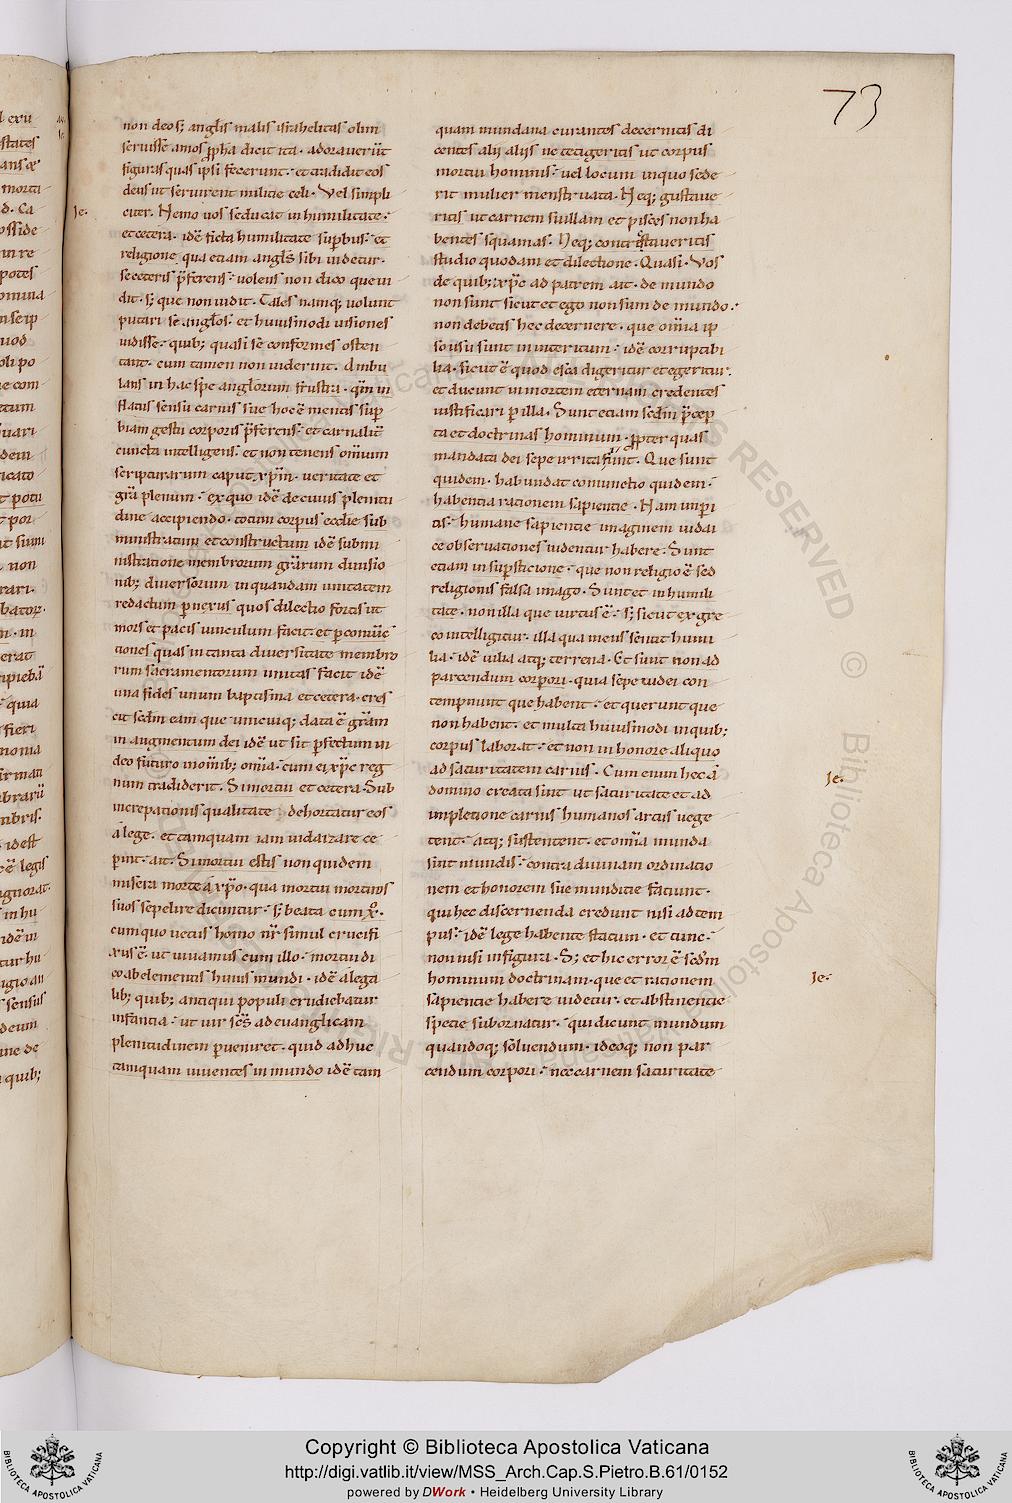 73
non deos; angłis malis israhelitas olim
seruisse amos ꝓpha dicit ita · adorauerūt
figuras quas ipsi fecerunt · et tradidit eos
deus ut seruirent militie celi · Vel simpli
citer · Nemo uos seducat in humilitate ·
et cetera · idē ficta humilitate suꝑbus · et
religione qua etiam angłs sibi uidetur ·
se ceteris p̄ferens · uolens non dico que ui
dit · s; que non uidit · Tales namq; uolunt
putari se angłos · et huiusmodi uisiones
uidisse · quib; quasi se conformes osten
tant · cum tamen non uiderint · Ambu
lans in hac spe angłorum frustra · qm̄ in
flatus sensu carnis sue hoc ē mentis suꝑ
biam gestu corporis p̄ferens · et carnalit̄
cuncta intelligens · et non tenens omnium
scripturarum caput · xp̄m · ueritate et
gr̄a plenum · ex quo idē de cuius plenitu
dine accipiendo · totum corpus ecclie sub
ministratum et constructum idē submi
nistratione membrorum gr̄arum diuisio
nib; diuersorum in quandam unitatem
redactum ꝑ nexus quos dilectio fortis ut
mors et pacis uinculum facit · et ꝑ coniūc
tiones quas in tanta diuersitate membro
rum sacramentorum unitas facit idē
una fides unum baptisma et cetera · cres
cit scdm eam que unicuiq; data ē gr̄am
in augmentum dei idē ut sit ꝑfectum in
deo futuro in om̄ib; om̄ia · cum ei xp̄c reg
num tradiderit · Si mortui et cetera · Sub
increpationis qualitate dehortatur eos
a lege · et tamquam iam iudaizare ce
pint · ait · Si mortui estis non quidem
misera morte a xp̄o · qua mortui mortuos
suos sepelire dicuntur · s; beata cum xp̄o ·
cum quo uetus homo nr̄ simul crucifi
xus ē · ut uiuamus cum illo · mortui di
co ab elementis huius mundi · idē a lega
lib; quib; antiqui populi erudiebatur
infantia · ut uir scs̄ ad euanglicam
plenitudinem ꝑueniret · quid adhuc
tamquam uiuentes in mundo idē tam
quam mundana curantes decernitis di
centes alij alijs ne tetigeritis ut corpus
mortui hominis · uel locum in quo sede
rit mulier menstruata · Neq; gustaue
ritis ut carnem suillam et pisces non ha
bentes squamas · Neq; contrectaueritis
studio quodam et dilectione · Quasi · Vos
de quib; xp̄c ad patrem ait · de mundo
non sunt sicut et ego non sum de mundo ·
non debetis hec decernere · que om̄ia ip
so usu sunt in interitum · idē corruptibi
lia · sicut ē quod esca digeritur et egeritur ·
et ducunt in mortem eternam credentes
iustificari ꝑ illa · Sunt etiam scdm p̄cep
ta et doctrinas hominum · ꝓpter quas
mandata dei sepe irrita fiunt · Que sunt
quidem · habundat coniunctio quidem ·
habentia rationem sapientie · Nam imꝑi
tis · humane sapientie imaginem iudai
ce obseruationes uidentur habere · Sunt
etiam in suꝑsticione · que non religio ē sed
religionis falsa imago · Sunt et in humili
tate · non illa que uirtus ē · s; sicut ex gre
co intelligitur · illa qua mens sentit humi
lia · idē uilia atq; terrena · Et sunt non ad
parcendum corpori · quia sepe iudei con
tempnunt que habent · et querunt que
non habent · et multa huiusmodi in quib;
corpus laborat · et non in honore aliquo
ad saturitatem carnis · Cum enim hec a
domino creata sint ut saturitate et ad
impletione carnis humanos artus uege
tent · atq; sustentent · et om̄ia munda
sint mundis · contra diuinam ordinatio
nem et honorem sue munditie faciunt ·
qui hec discernenda credunt nisi ad tem
pus · idē lege habente statum · et tunc ·
non nisi in figura · S; et hic error ē scdm
hominum doctrinam · que et rationem
sapientie habere uidetur · et abstinentie
specie subornatur · qui dicunt mundum
quandoq; soluendum · ideoq; non par
cendum corpori · nec carnem saturitate
Je.
Je.
Je.
Copyright © Biblioteca Apostolica Vaticana
http://digi.vatlib.it/view/MSS_Arch.Cap.S.Pietro.B.61/0152
powered by DWork • Heidelberg University Library